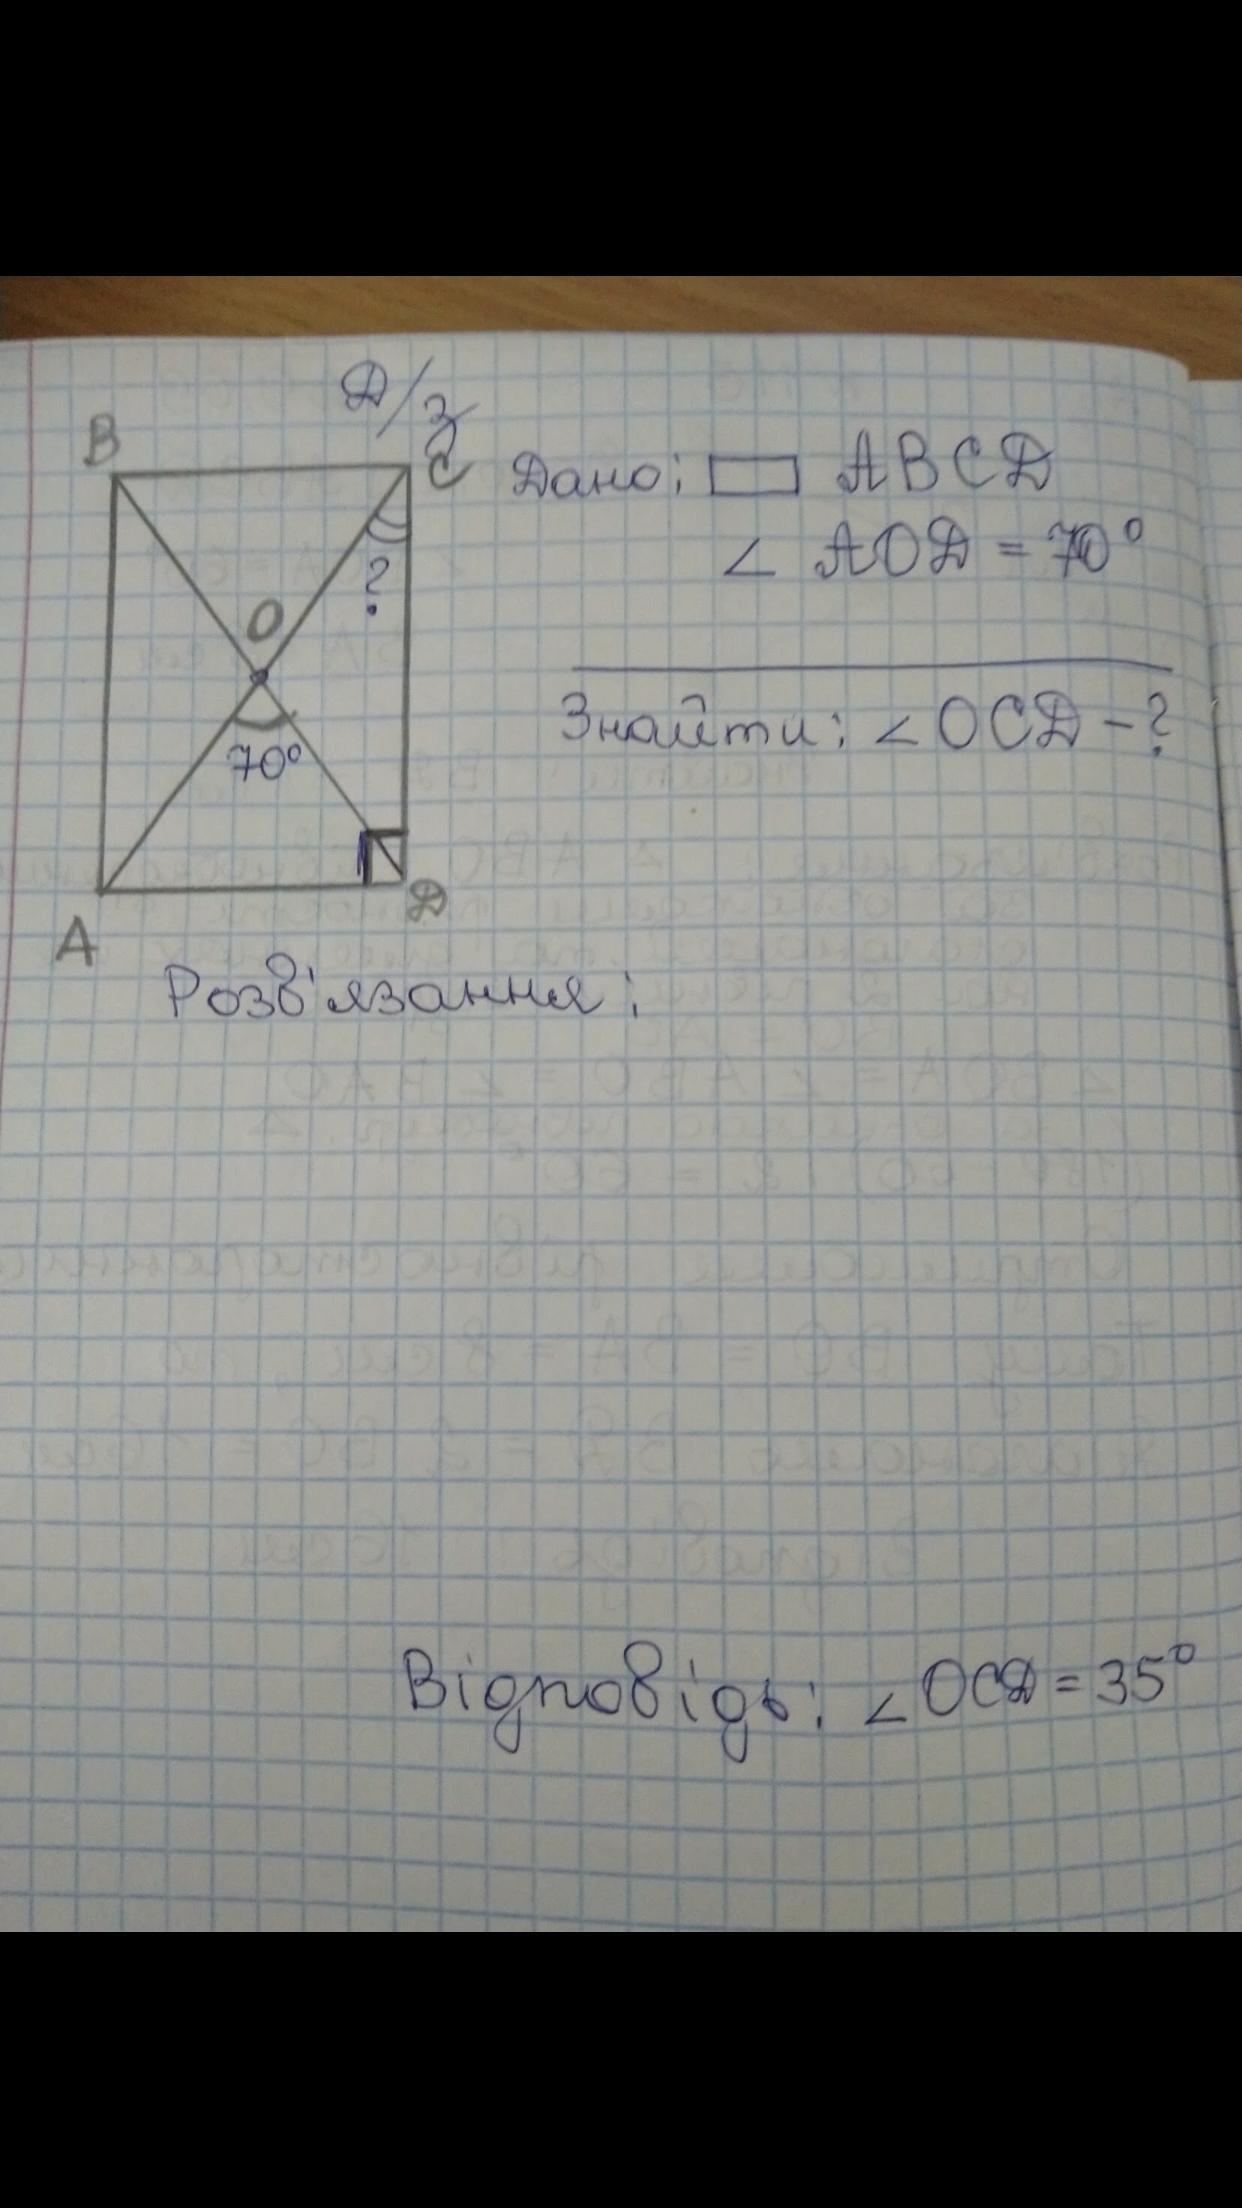 Д/з
B
C
Дано: ABCD
∠ AOD = 70°
?
O
Знайти: ∠OCD - ?
70°
A
D
Розв'язання:
Відповідь: ∠OCD = 35°